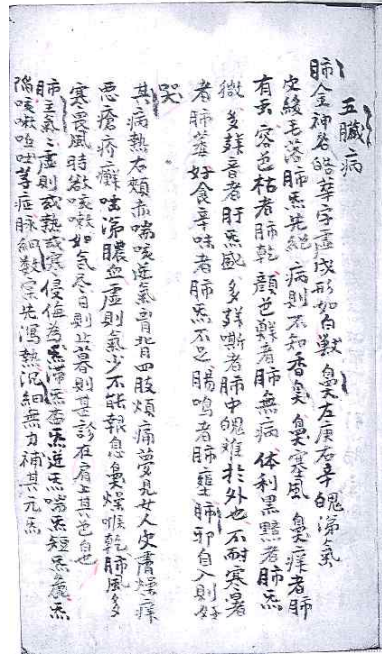 五臟病
肺金神名皓華字虛成形如白獸鼻左庚右辛魄涕氣
皮緩毛落肺炁先絕病則不知香臭鼻塞風鼻痒者肺
有虫容色枯者肺乾顏色鮮者肺無病体利黑黯者肺炁
微多聲音者肝炁盛多聲嘶者肺中魄離於外也不耐寒暑
者肺蒸好食辛味者肺炁不足腸鳴者肺壅肺邪自入則好
哭
其病熱右頰赤喘咳逆氣背四肢煩痛夢見女人皮膚燥痒
悪瘡疥癬咳涕膿血虛則氣少不能報息鼻燥喉乾肺風多
寒畏風時欲咳嗽如氣尽日則止暮則甚診在肩上其色白也
肺主氣氣虛則或熱或寒侵侮為炁滯炁逆炁喘炁短炁
咳嗽嘔吐等症脉細数宗先瀉熱沉細無力補其元炁